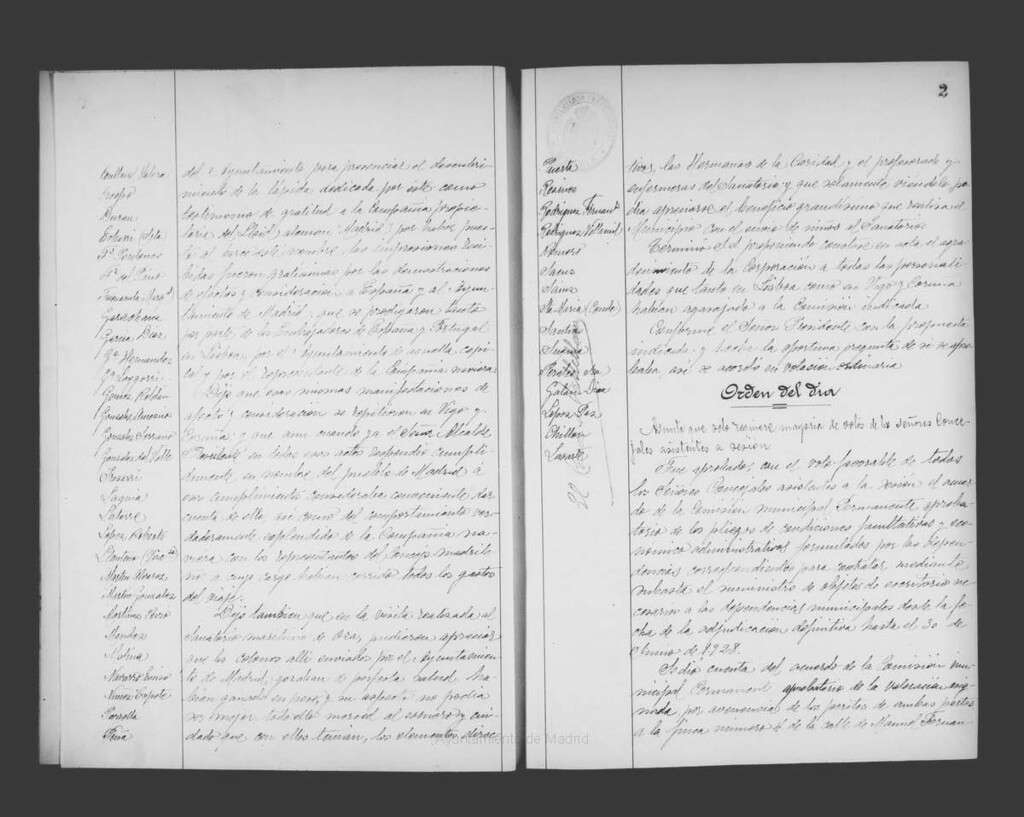 Crespo
Duran
García Diaz
Gª Hernandez
Gomez Roldán
Gonzalez Serrano
Gonzalez del Valle
Laguia
Latorre
Lopez Roberts
Martin Alvarez
Martin Gonzalez
Mendez
Molina
Nuñez Topete
Parrella
Peña
del Ayuntamiento para presenciar el descubri-
miento de la lápida dedicada por este como
testimonio de gratitud a la Compañía propie-
taria del alemán Madrid por haber pues-
to al este nombre, las impresiones reci-
bidas fueron gratísimas por las demostraciones
de afecto y consideración a España y al Ayun-
tamiento de Madrid que se prodigaron tanto
por parte de los de España y Portugal
en Lisboa, por el Ayuntamiento de aquella capi-
tal y por el representante de la Compañía naviera
Dijo que esas mismas manifestaciones de
afecto y consideración se repitieron en Vigo y
Coruña; y que aun cuando ya el Señor Alcalde
Presidente en todos esos actos respondió cumpli-
damente en nombre del pueblo de Madrid a
ese cumplimiento consideraba conveniente dar
cuenta de ello, asi como del comportamiento ver-
daderamente esplendido de la Compañía na-
viera con los representantes del Concejo madrile-
ño a cuyo cargo habian corrido todos los gastos
del viaje.
Dijo tambien que en la visita realizada al
Sanatorio maritimo de Oza, pudieron apreciar
que los colonos alli enviados por el Ayuntamien-
to de Madrid, gozaban de perfecta salud, ha-
bian ganado en peso, y su aspecto no podía
ser mejor, todo ello merced al esmero y cui-
dado que con ellos tenian, los elementos direc-
(Ayuntamiento de Madrid
2
Puerta
Resines
Rodriguez Fernandz
Rodriguez Villamil
Romero
Saenz
Sanz
Sta Maria (Conde)
Galán Diaz
Lopez Paz
Chillón
tivos, las Hermanas de la Caridad y el profesorado y
enfermeras del Sanatorio y que solamente viendolo po-
dia apreciarse el beneficio grandísimo que realiza el
Municipio con el envio de niños al Sanatorio.
Terminó el Sr. proponiendo constase en acta el agra-
decimiento de la Corporación a todas las personali-
dades que tanto en Lisboa como en Vigo y Coruña
habian agasajado a la Comisión indicada
Conforme el Señor Presidente con la propuesta
indicada y hecha la oportuna pregunta de si se apro-
baba, asi se acordó en votación ordinaria
Orden del día
Asunto que solo requiere mayoría de votos de los señores Conce-
jales asistentes a sesión
Fue aprobado, con el voto favorable de todos
los Señores Concejales asistentes a la sesión el acuer-
do de la Comisión municipal Permanente aproba-
torio de los pliegos de condiciones facultativas y eco-
nomico administrativas formulados por las depen-
dencias correspondientes para contratar mediante
subasta el suministro de objetos de escritorio ne-
cesarios a las dependencias municipales desde la fe-
cha de la adjudicación definitiva hasta el 30 de
Junio de 1928.
Se dió cuenta del acuerdo de la Comisión mu-
nicipal Permanente aprobatorio de la valoración asig-
nada por avenencia de los peritos de ambas partes
a la finca número 4 de la calle de Manuel Fernan-